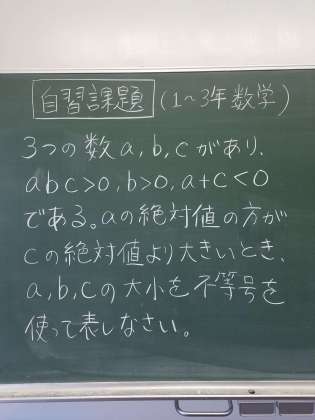 自習課題 (1~3年数学)
3つの数a,b,cがあり、
abc>0,b>0,a+c<0
である。aの絶対値の方が
cの絶対値より大きいとき、
a,b,cの大小を不等号を
使って表しなさい。